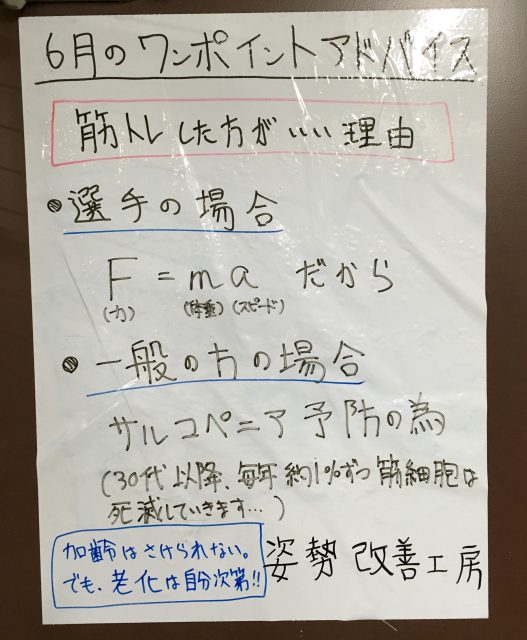 6月のワンポイントアドバイス
筋トレした方がいい理由
●選手の場合
F = ma だから
(力) (体重) (スピード)
●一般の方の場合
サルコペニア予防の為
(30代以降、毎年約1%ずつ筋細胞は
死滅していきます…)
加齢はさけられない。
でも、老化は自分次第!!
姿勢改善工房